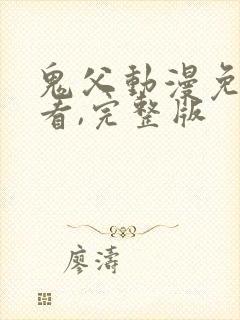 鬼父動漫免
看,完整版
廖濤